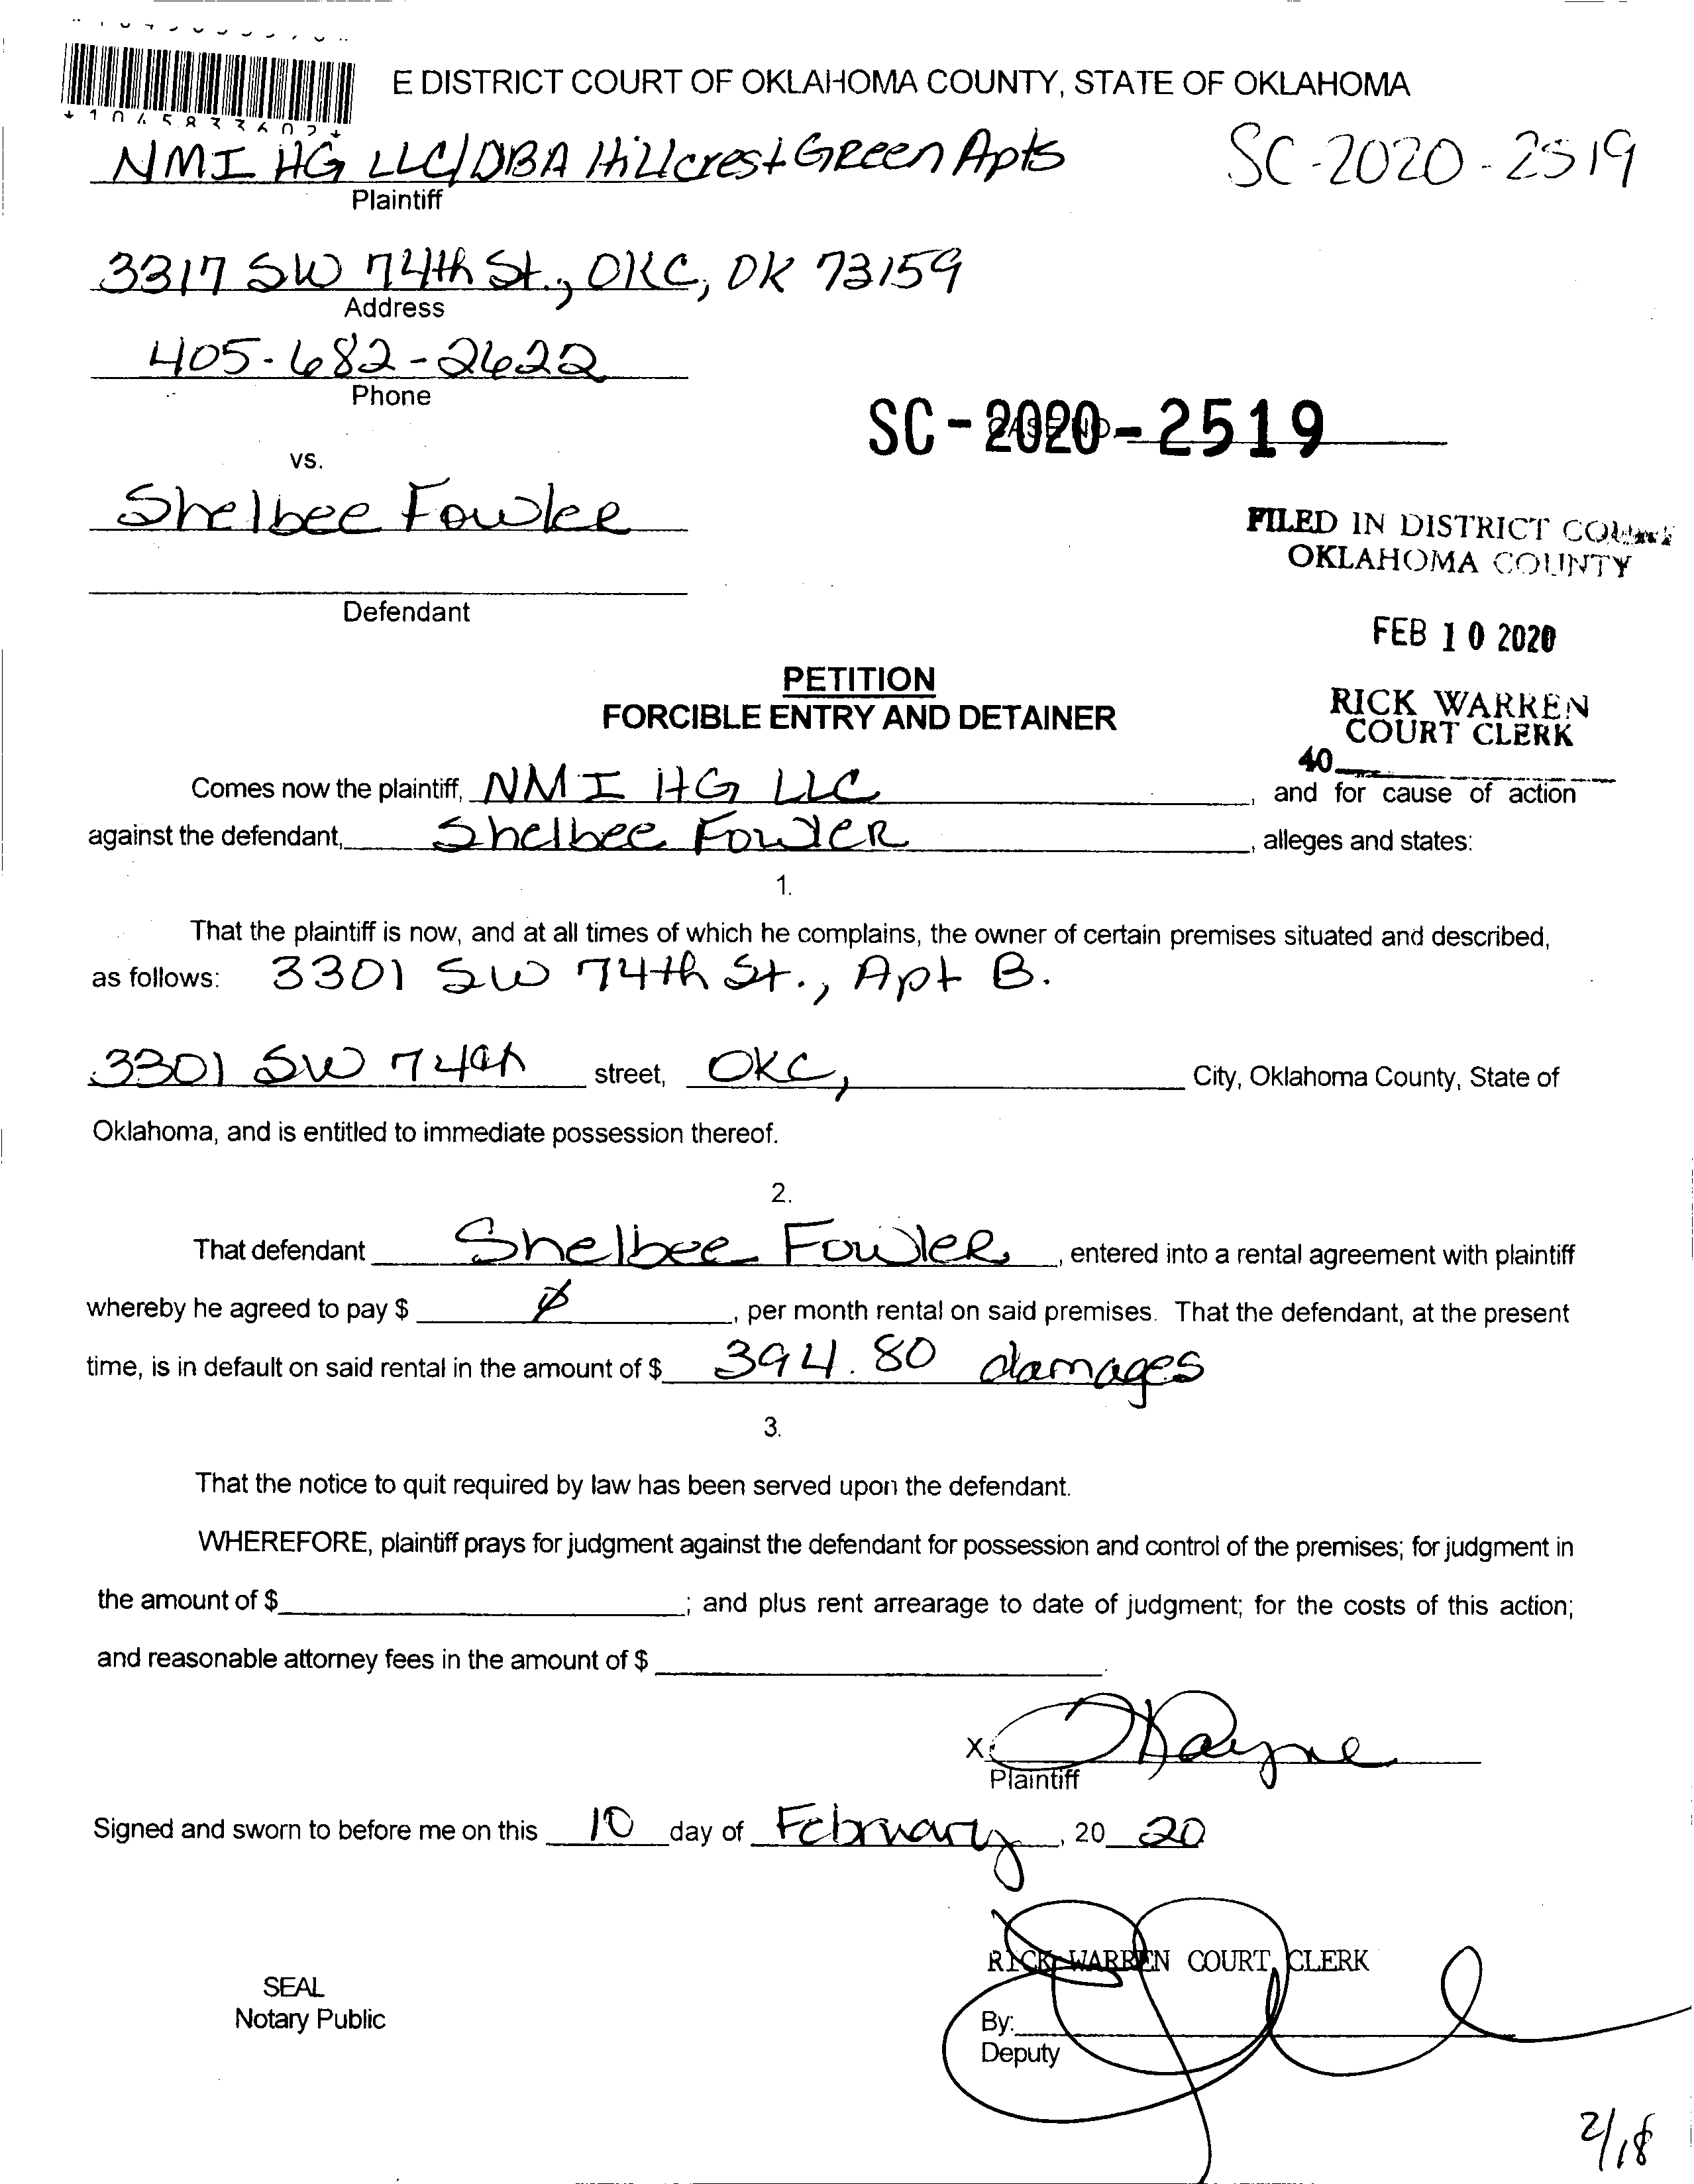 *1045833602*
E DISTRICT COURT OF OKLAHOMA COUNTY, STATE OF OKLAHOMA
NMI HG LLC/DBA Hillcrest Green Apts SC-2020-2519
Plaintiff
3317 SW 74th St., OKC, OK 73159
Address
405-682-2622
Phone
SC-2020-2519
vs.
Shelbee Fowler
FILED IN DISTRICT COURT
OKLAHOMA COUNTY
Defendant
FEB 10 2020
PETITION
FORCIBLE ENTRY AND DETAINER
RICK WARREN
COURT CLERK
40
Comes now the plaintiff, NMI HG LLC, and for cause of action
against the defendant, Shelbee Fowler, alleges and states:
1.
That the plaintiff is now, and at all times of which he complains, the owner of certain premises situated and described,
as follows: 3301 SW 74th St., Apt B.
3301 SW 74th street, OKC, City, Oklahoma County, State of
Oklahoma, and is entitled to immediate possession thereof.
2.
That defendant Shelbee Fowler, entered into a rental agreement with plaintiff
whereby he agreed to pay $ ∅, per month rental on said premises. That the defendant, at the present
time, is in default on said rental in the amount of $ 394.80 damages
3.
That the notice to quit required by law has been served upon the defendant.
WHEREFORE, plaintiff prays for judgment against the defendant for possession and control of the premises; for judgment in
the amount of $ ; and plus rent arrearage to date of judgment; for the costs of this action;
and reasonable attorney fees in the amount of $ .
X Payne
Plaintiff
Signed and sworn to before me on this 10 day of February, 20 20
RICK WARREN COURT CLERK
SEAL
Notary Public
By:
Deputy
2/18